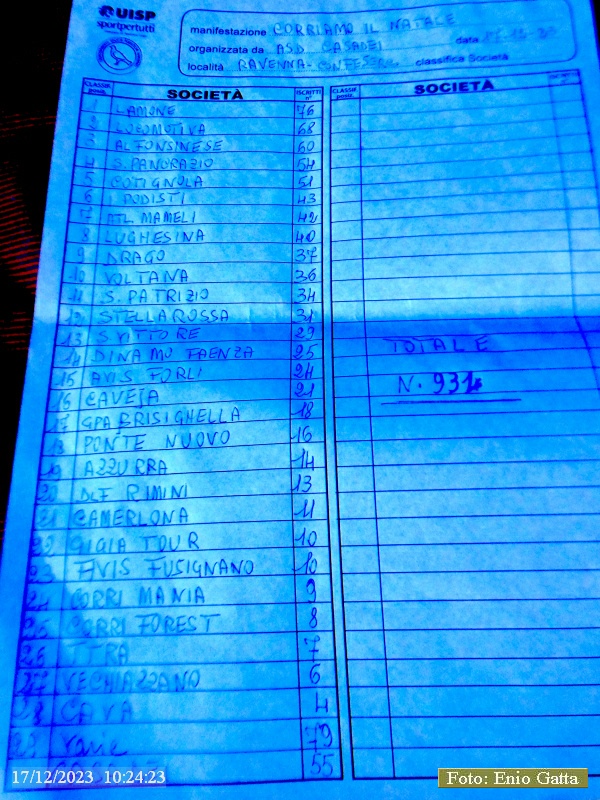 UISP
sportpertutti
manifestazione CORRIAMO IL NATALE
organizzata da ASD CASADEI data
località RAVENNA- classifica Società
CLASSIF. posiz. SOCIETÀ ISCRITTI n° CLASSIF. posiz. SOCIETÀ
1 LAMONE 76
2 LOCOMOTIVA 68
3 ALFONSINESE 60
4 S. PANCRAZIO 54
5 COTIGNOLA 51
6 I PODISTI 43
7 ATL. MAMELI 42
8 LUGHESINA 40
9 DRAGO 37
10 VOLTANA 36
11 S. PATRIZIO 34
12 STELLA ROSSA 31
13 S VITTORE 29
14 DINAMO FAENZA 25
15 AVIS FORLI 24
16 CAVEJA 21
17 GPA BRISIGHELLA 18
18 PONTE NUOVO 16
19 AZZURRA 14
20 DLF RIMINI 13
21 CAMERLONA 11
22 GIGIA TOUR 10
23 AVIS FUSIGNANO 10
24 CORRI MANIA 9
25 CORRI FOREST 8
26 7
27 VECCHIAZZANO 6
28 CAVA 4
29 Varie 79
55
TOTALE
N. 931
17/12/2023 10:24:23
Foto: Enio Gatta